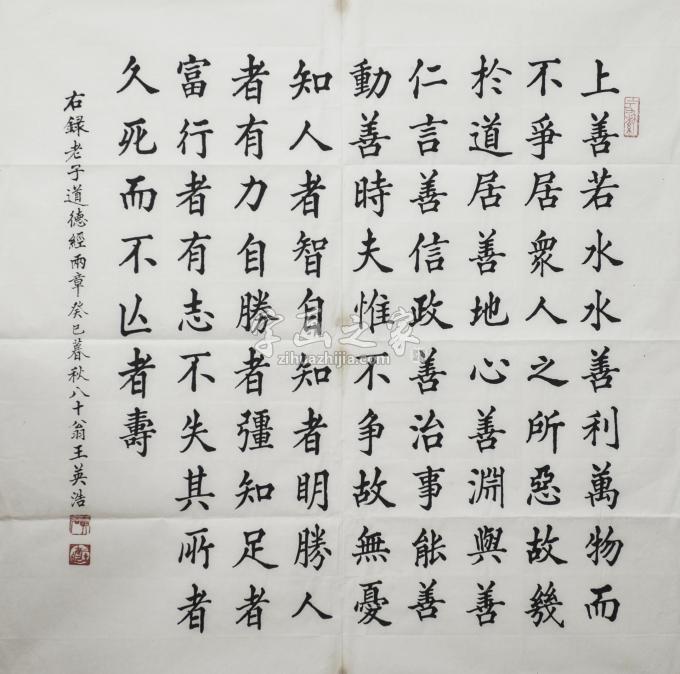 上善若水水善利萬物而
不爭居衆人之所惡故幾
於道居善地心善淵與善
仁言善信政善治事能善
動善時夫惟不争故無憂
知人者智自知者明勝人
者有力自勝者彊知足者
富行者有志不失其所者
久死而不亾者壽
右録老子道德經兩章癸巳暮秋八十翁王英浩
字画之家
zihuazhijia.com